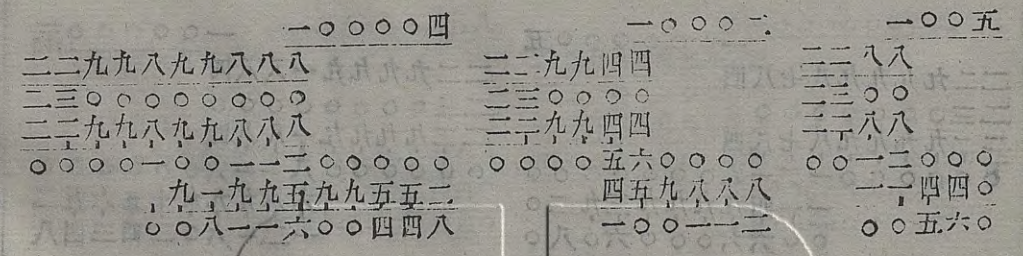 一〇〇〇〇四
二二九九八九九八八八
二三〇〇〇〇〇〇〇〇
二二九九八九九八八八
〇〇〇〇一〇〇一一二〇〇〇〇〇
九一九九五九九五五二
〇〇八一一六〇〇四四八
一〇〇〇二
二二九九四四
二三〇〇〇〇
二二九九四四
〇〇〇〇五六〇〇〇〇
四五九八八八
一〇〇一一二
一〇〇五
二二八八
二三〇〇
二二八八
〇〇一二〇〇〇
一一四四〇
〇〇五六〇